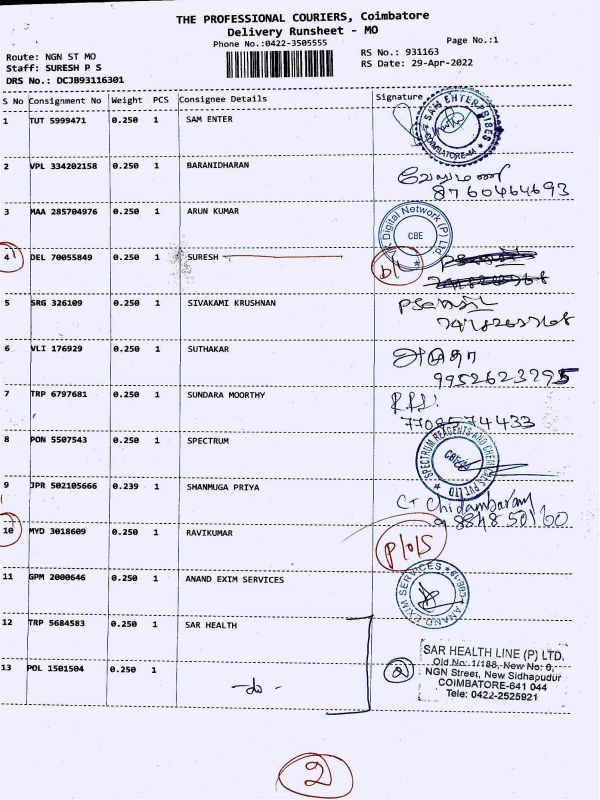 THE PROFESSIONAL COURIERS, Coimbatore
Delivery Runsheet - MO
Phone No.:0422-3505555
Page No.:1
Route: NGN ST MO
Staff: SURESH P S
DRS No.: DCJB93116301
RS No.: 931163
RS Date: 29-Apr-2022
S No Consignment No Weight PCS Consignee Details Signature
1 TUT 5999471 0.250 1 SAM ENTER
SAM ENTERPRISES
COIMBATORE-44
2 VPL 334202158 0.250 1 BARANIDHARAN
வேலுமணி
8760464693
3 MAA 285704976 0.250 1 ARUN KUMAR
Digital Network (P) Ltd
CBE
4 DEL 70055849 0.250 1 SURESH
D/L
5 SRG 326109 0.250 1 SIVAKAMI KRUSHNAN
6 VLI 176929 0.250 1 SUTHAKAR
9952623295
7 TRP 6797681 0.250 1 SUNDARA MOORTHY
7708574433
8 PON 5507543 0.250 1 SPECTRUM
SPECTRUM REAGENTS AND CHEMICALS PVT LTD
CBE
9 JPR 502105666 0.239 1 SHANMUGA PRIYA
G Chidambaram
9884850160
10 MYD 3018609 0.250 1 RAVIKUMAR
P/O/S
11 GPM 2000646 0.250 1 ANAND EXIM SERVICES
ANAND EXIM SERVICES
12 TRP 5684583 0.250 1 SAR HEALTH
SAR HEALTH LINE (P) LTD.
Old No. 1/188, New No: 6,
NGN Street, New Sidhapudur
COIMBATORE-641 044
Tele: 0422-2525921
13 POL 1501504 0.250 1 -do-
2
2